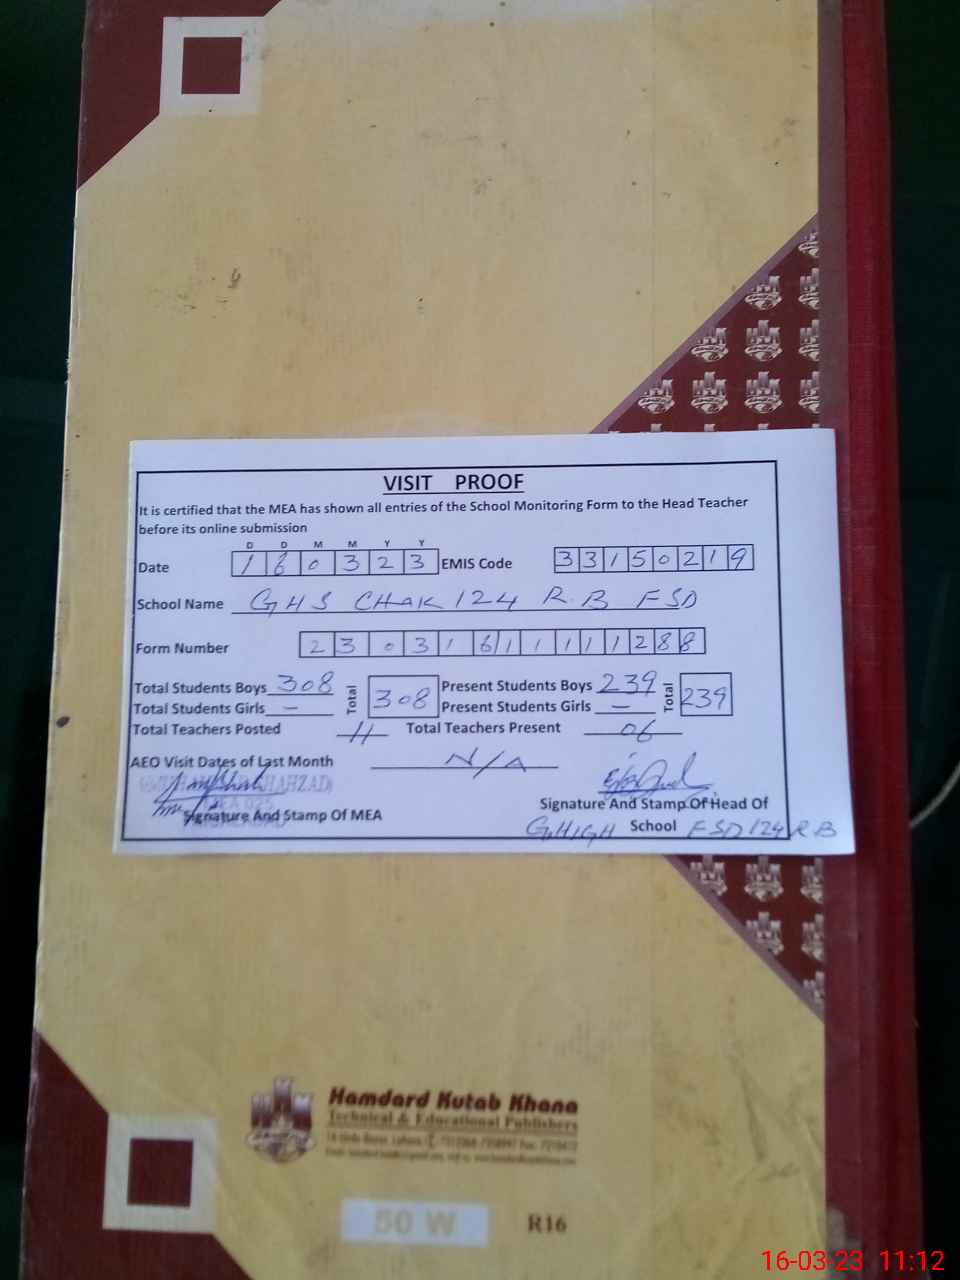 VISIT PROOF
It is certified that the MEA has shown all entries of the School Monitoring Form to the Head Teacher
before its online submission
D D M M Y Y
Date 1 6 0 3 2 3 EMIS Code 3 3 1 5 0 2 1 9
School Name GHS CHAK 124 R.B FSD
Form Number 2 3 0 3 1 6 1 1 1 1 1 2 8 8
Total Students Boys 308 Total 308 Present Students Boys 239 Total 239
Total Students Girls — Present Students Girls —
Total Teachers Posted 11 Total Teachers Present 06
AEO Visit Dates of Last Month N/A
SHAHZAD
MEA 025
Signature And Stamp Of MEA
Signature And Stamp Of Head Of
G.HIGH School FSD 124 RB
Hamdard Kutab Khana
Technical & Educational Publishers
50 W R16
16-03-23 11:12